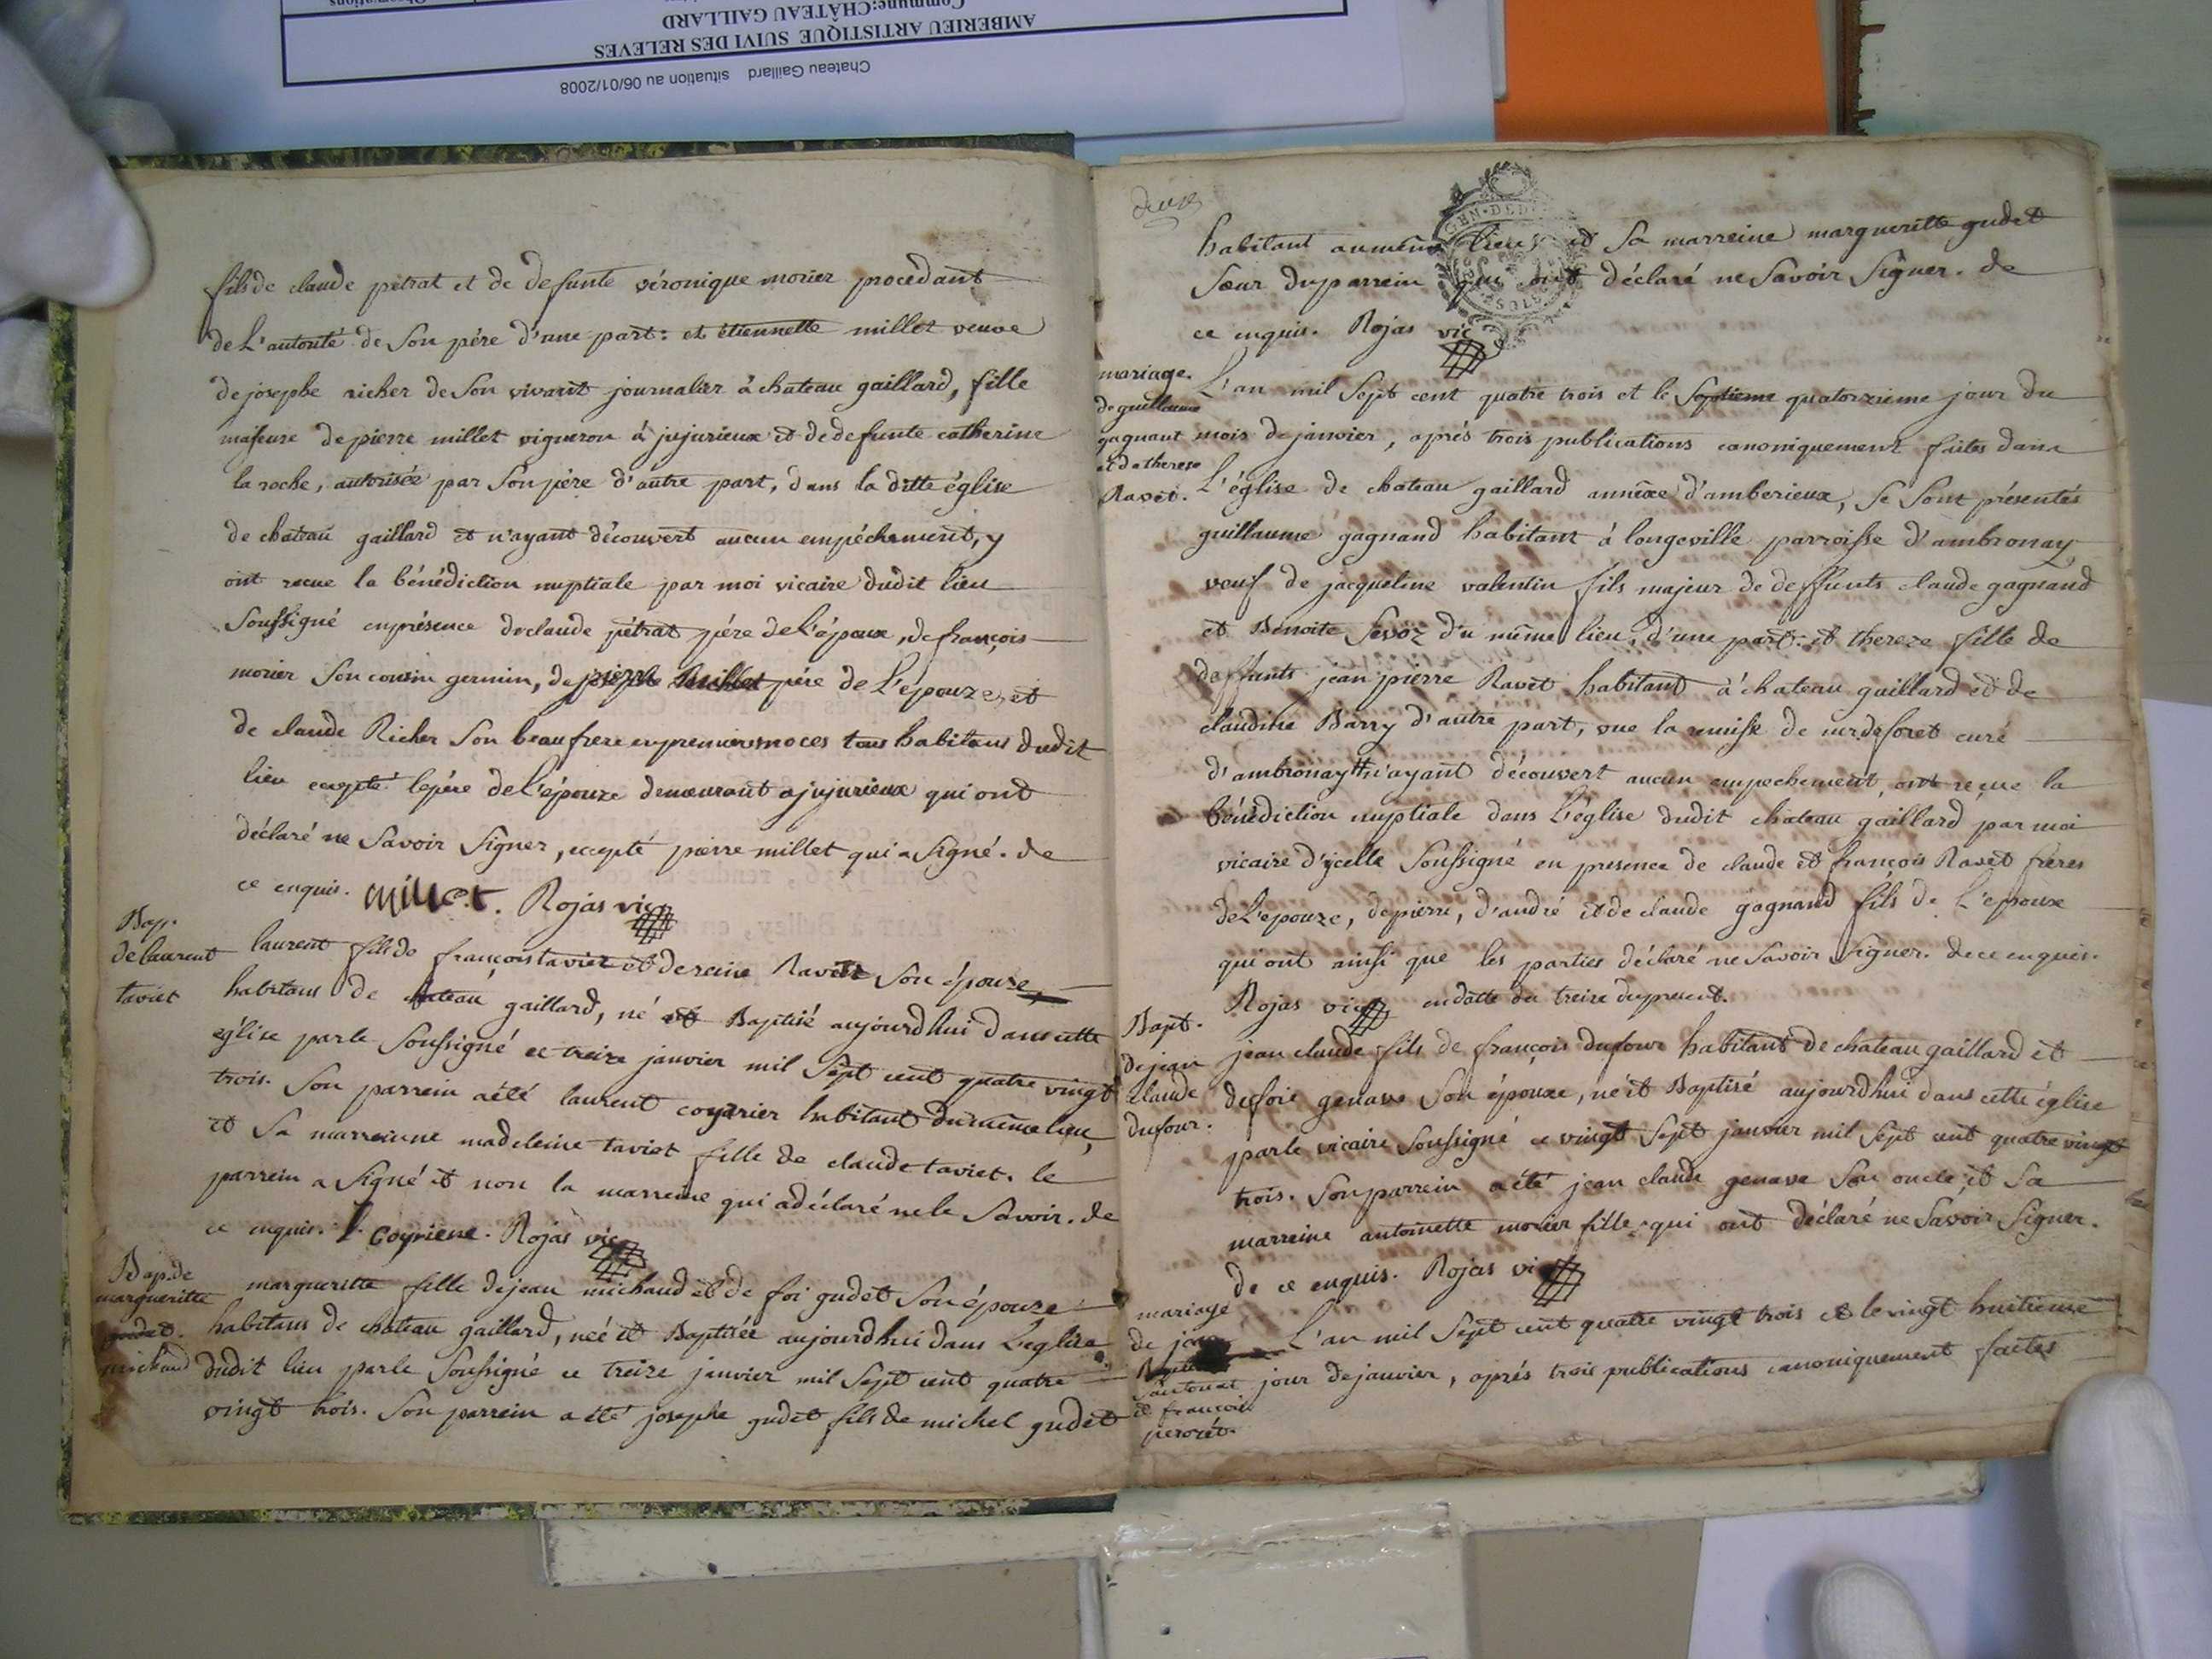 Chateau Gaillard situation au 06/01/2008
AMBERIEU ARTISTIQUE SUIVI DES RELEVES
Commune:CHÂTEAU GAILLARD
fils de claude pétrat et de defunte véronique morier procedant
de L'autorité de Son pére d'une part: et étiennette millet veuve
de josephe richer de Son vivant journalier à chateau gaillard, fille
majeure de pierre millet vigneron à jujurieux et de defunte catherine
la roche, autorisée par Son pére d'autre part, dans la ditte église
de chateau gaillard et n'ayant découvert aucun empéchement, y
ont recue la bénédiction nuptiale par moi vicaire dudit lieu
Soussigné en présence de claude pétrat pére de L'époux, de françois
morier Son cousin germin, de pierre millet pére de L'épouze, et
de claude Richer Son beaufrere en premieres noces tous habitans dudit
lieu excepté lepére de L'épouze demeurant a jujurieux qui ont
déclaré ne Savoir Signer, excepté pierre millet qui a Signé. de
ce enquis. millet. Rojas vic
Bap.
de laurent
taviet
laurent fils de françois taviet et de reine Ravet Son épouze
habitans de chateau gaillard, né et Baptisé aujourdhui dans cette
église par le Soussigné ce treize janvier mil Sept cent quatre vingt
trois. Son parrein a été laurent coyrier habitant du même lieu,
et Sa marreinne madeleine taviet fille de claude taviet. le
parrein a Signé et non la marreine qui a déclaré ne le Savoir. de
ce enquis. l. Coyriere. Rojas vic
Bap. de
margueritte
gudet.
michaud
margueritte fille de jean michaud et de foi gudet Son épouze
habitans de chateau gaillard, neé et Baptisée aujourdhui dans L'eglise
dudit lieu par le Soussigné ce treize janvier mil Sept cent quatre
vingt trois. Son parrein a été josephe gudet fils de michel gudet
deux
habitant au même lieu et Sa marreine margueritte gudet
Sœur du parrein qui ont déclaré ne Savoir Signer. de
ce enquis. Rojas vic
mariage.
de guillaume
gagnant
et de therese
Ravet.
L'an mil Sept cent quatre trois et le Septieme quatorzieme jour du
mois de janvier, aprés trois publications canoniquement faites dans
L'église de chateau gaillard annexe d'amberieux, Se Sont présentés
guillaume gagnand habitant à longeville parroisse d'ambronay
veuf de jacqueline valentin fils majeur de deffunts claude gagnand
et Benoite Sevoz du même lieu, d'une part: et thereze fille de
deffunts jean pierre Ravet habitant à chateau gaillard et de
claudine Barry d'autre part, vue la remise de mr. deforet curé
d'ambronay n'ayant découvert aucun empechement, ont reçue la
bénédiction nuptiale dans L'église dudit chateau gaillard par moi
vicaire d'ycelle Soussigné en presence de claude et françois Ravet fréres
de L'epouze, de pierre, d'andré et de claude gagnand fils de L'epoux
qui ont ainsi que les parties déclaré ne Savoir Signer. de ce enquis.
Rojas vic en datte du treize du present.
Bapt.
de jean
claude
dufour.
jean claude fils de françois dufour habitant de chateau gaillard et
de foie genave Son épouze, né et Baptisé aujourdhui dans cette église
par le vicaire Soussigné ce vingt Sept janvier mil Sept cent quatre vingt
trois. Son parrein a été jean claude genave Son oncle, et Sa
marreine antoinette morier fille qui ont déclaré ne Savoir Signer.
de ce enquis. Rojas vic
mariage
de jean
et francoise
perozet.
L'an mil Sept cent quatre vingt trois et le vingt huitieme
jour de janvier, aprés trois publications canoniquement faites